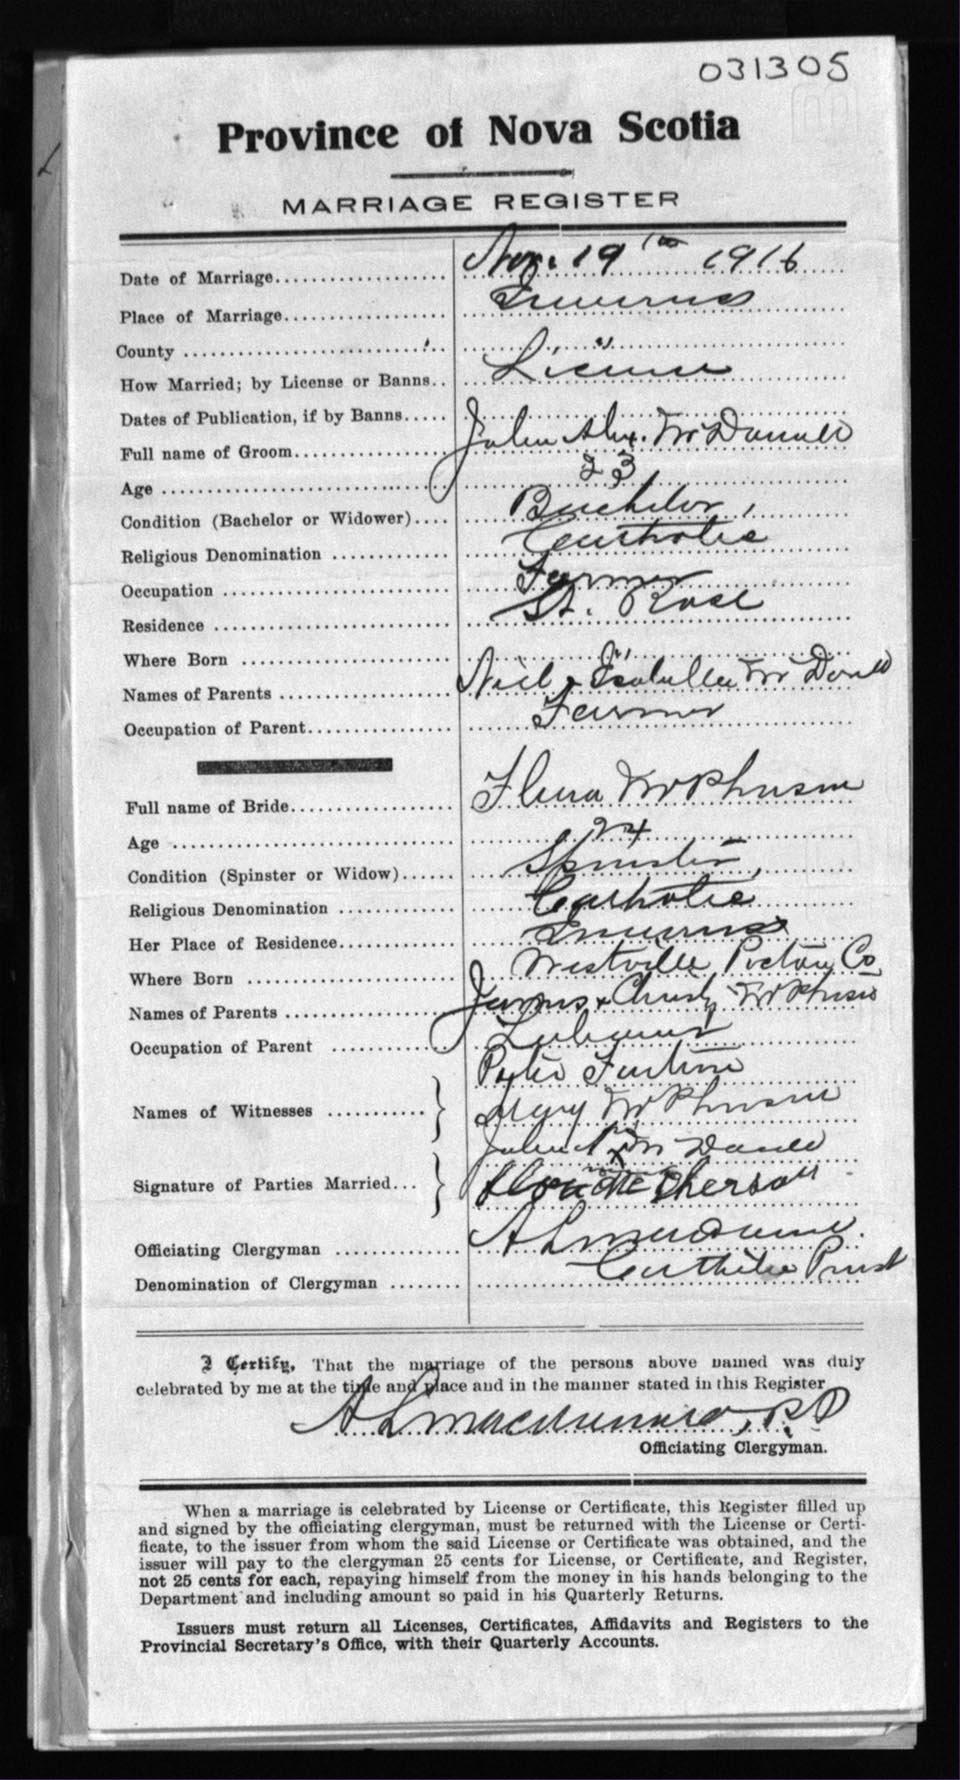 031305
Province of Nova Scotia
MARRIAGE REGISTER
Date of Marriage Nov. 19th 1916
Place of Marriage Inverness
County "
How Married; by License or Banns License
Dates of Publication, if by Banns
Full name of Groom John Alex. McDonald
Age 23
Condition (Bachelor or Widower) Bachelor
Religious Denomination Catholic
Occupation Farmer
Residence St. Rose
Where Born "
Names of Parents Neil & Isabella McDonald
Occupation of Parent Farmer
Full name of Bride Flora McPherson
Age 24
Condition (Spinster or Widow) Spinster
Religious Denomination Catholic
Her Place of Residence Inverness
Where Born Westville Pictou Co
Names of Parents James & Christy McPherson
Occupation of Parent Labourer
Peter
Names of Witnesses Mary McPherson
John A McDonald
Signature of Parties Married Flora McPherson
Officiating Clergyman A L
Denomination of Clergyman Catholic Priest
I Certify, That the marriage of the persons above named was duly
celebrated by me at the time and place and in the manner stated in this Register
A L P.P
Officiating Clergyman.
When a marriage is celebrated by License or Certificate, this Register filled up
and signed by the officiating clergyman, must be returned with the License or Certi-
ficate, to the issuer from whom the said License or Certificate was obtained, and the
issuer will pay to the clergyman 25 cents for License, or Certificate, and Register,
not 25 cents for each, repaying himself from the money in his hands belonging to the
Department and including amount so paid in his Quarterly Returns.
Issuers must return all Licenses, Certificates, Affidavits and Registers to the
Provincial Secretary's Office, with their Quarterly Accounts.